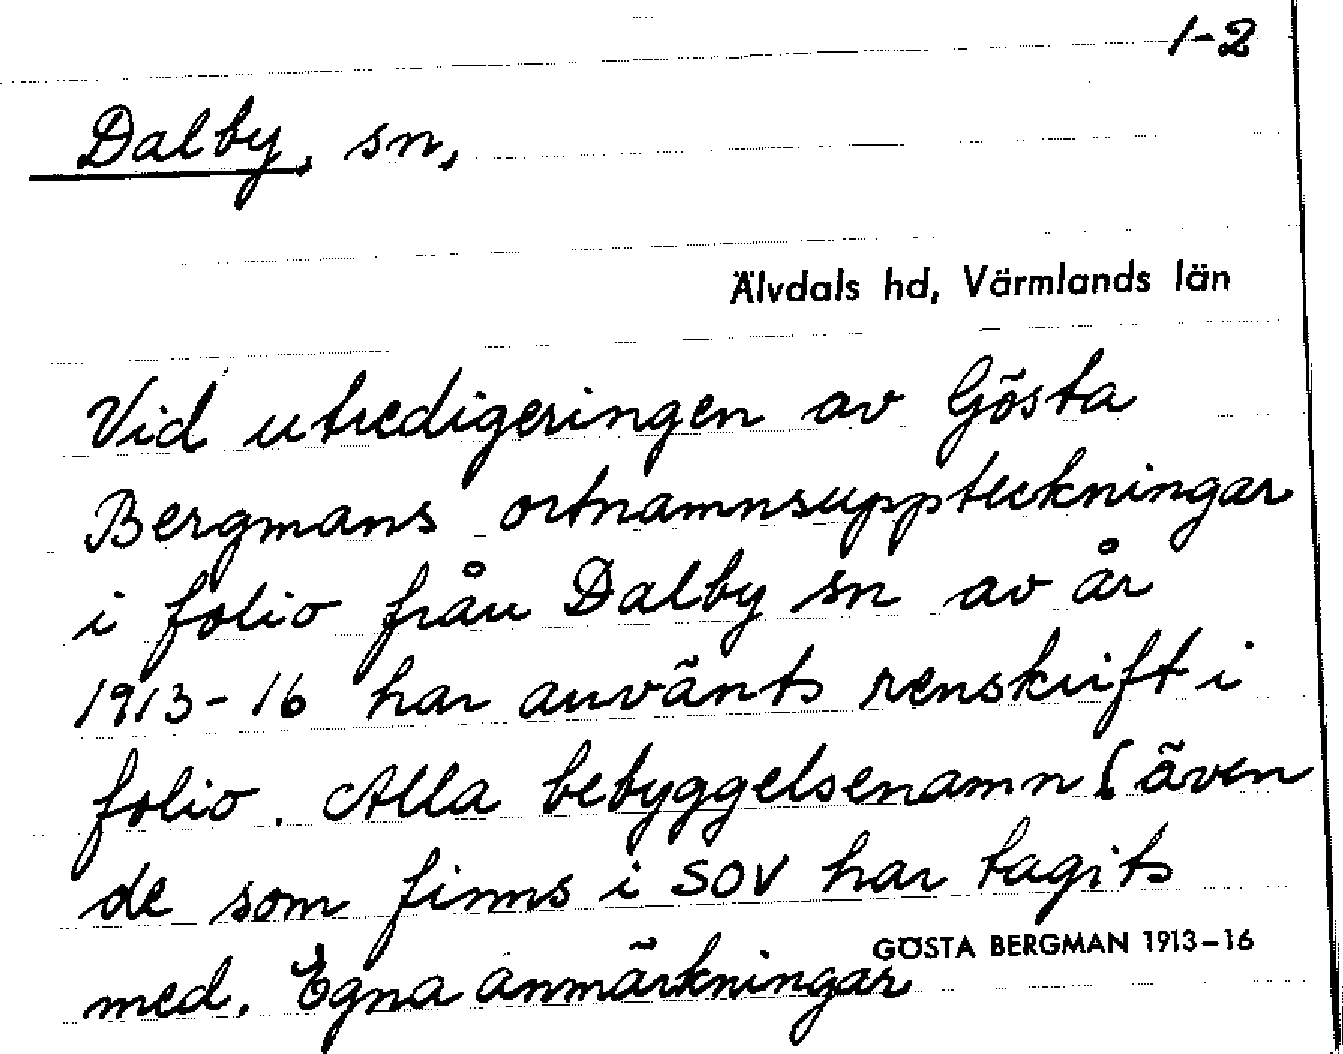 1-2
Dalby, sn,
Älvdals hd, Värmlands län
Vid utredigeringen av Gösta
Bergmans ortnamnsuppteckningar
i folio från Dalby sn av år
1913-16 har använts renskrift i
folio. Alla bebyggelsenamn (även
de som finns i SOV har tagits
med. Egna anmärkningar
GÖSTA BERGMAN 1913-16